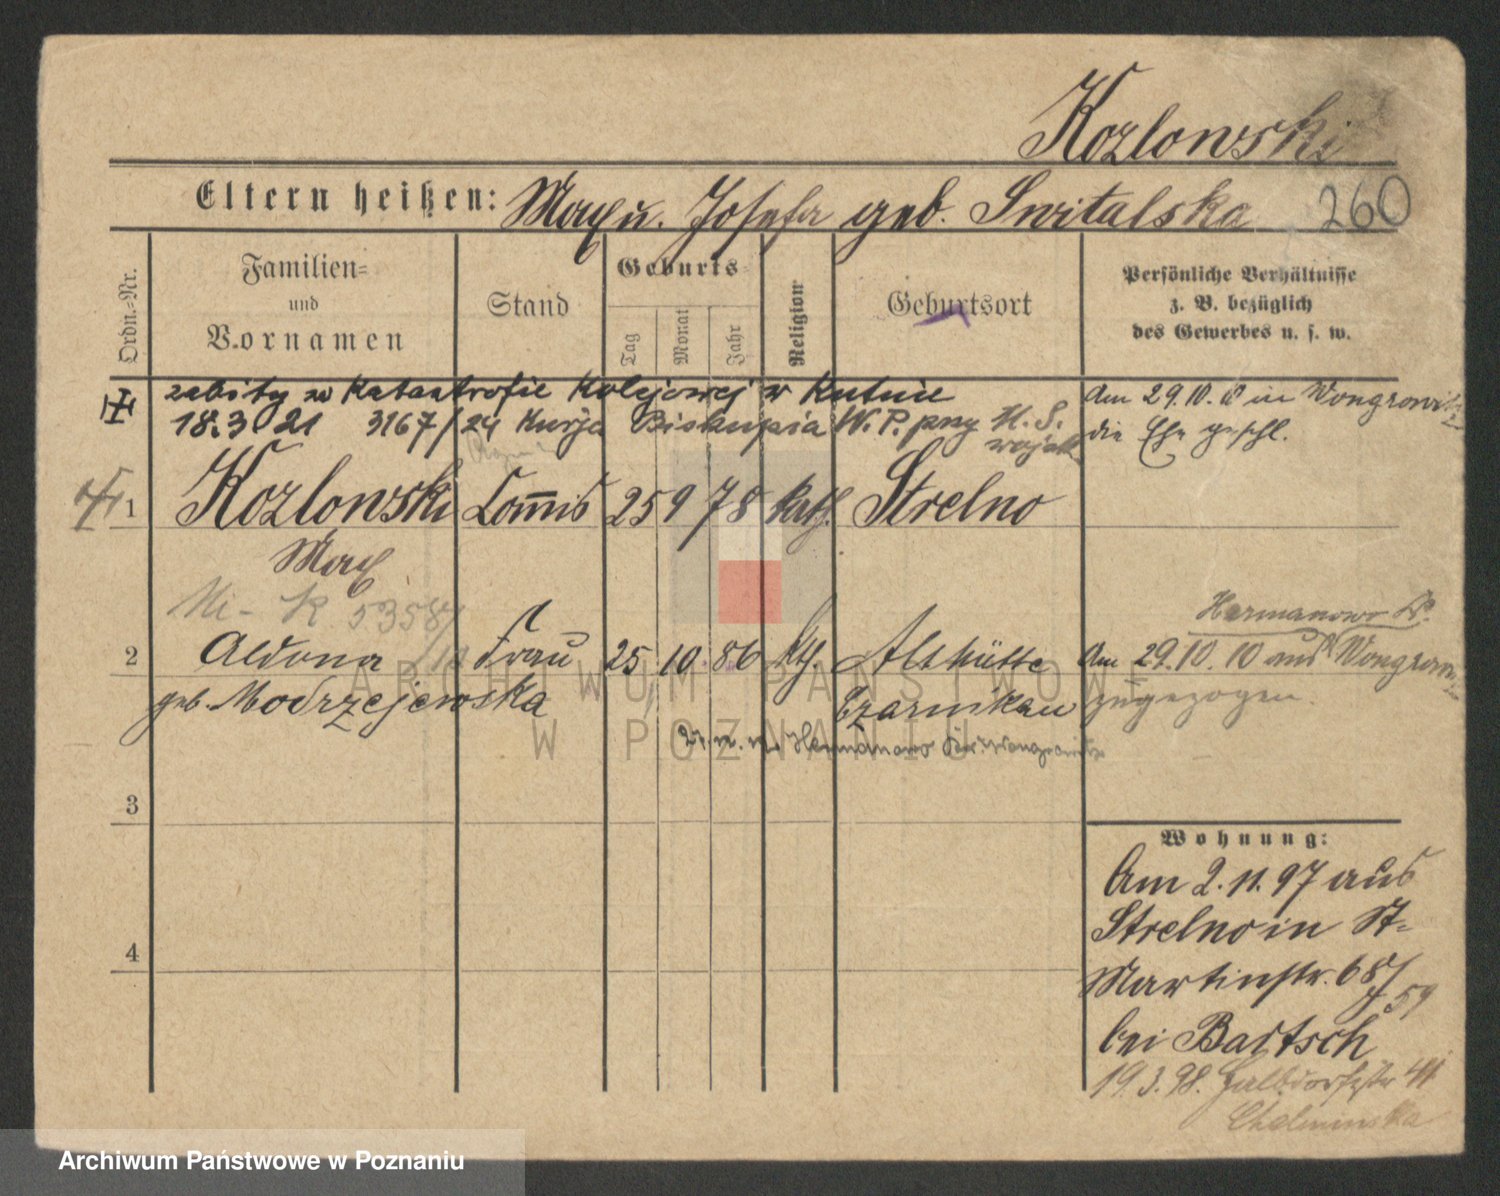 Kozlowski
Eltern heißen: Max u. Josefa geb. Switalska 260
Ordn.-Nr.
Familien=
und
Vornamen
Stand
Geburts=
Tag
Monat
Jahr
Religion
Geburtsort
Persönliche Verhältnisse
z. B. bezüglich
des Gewerbes u. s. w.
zabity w Katastrofie Kolejowej w Kutnie
18.3 21 3167/24 Kurja Biskupia W. P. przy
Am 29.10.10 in Wongrowitz
die Ehe geschl.
1 Kozlowski Commis 25 9 78 kath. Strelno
Max
5358/
Hermanowo
2 Aldona Frau 25 10 86 kth. Althütte
geb. Modrzejewska Czarnikau
Am 29.10.10 aus Wongrow.
zugezogen.
Hermanowo Kr. Wongrowitz
3
4
Wohnung:
Am 2.11.97 aus
Strelno in St.
Martinstr. 68/
59
bei Bartsch
19.3.98. Halbdorfstr 41
Chelminska
ARCHIWUM PAŃSTWOWE
W POZNANIU
Archiwum Państwowe w Poznaniu